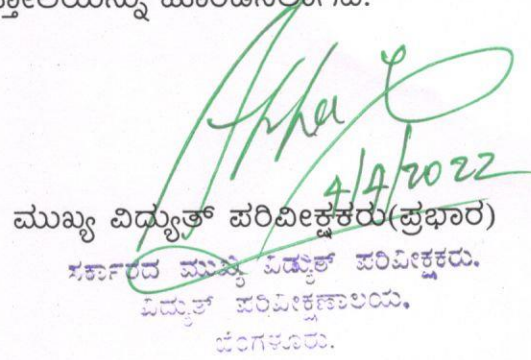 4/4/2022
ಮುಖ್ಯ ವಿದ್ಯುತ್ ಪರಿವೀಕ್ಷಕರು(ಪ್ರಭಾರ)
ಸರ್ಕಾರದ ಮುಖ್ಯ ವಿದ್ಯುತ್ ಪರಿವೀಕ್ಷಕರು.
ವಿದ್ಯುತ್ ಪರಿವೀಕ್ಷಣಾಲಯ,
ಬೆಂಗಳೂರು.